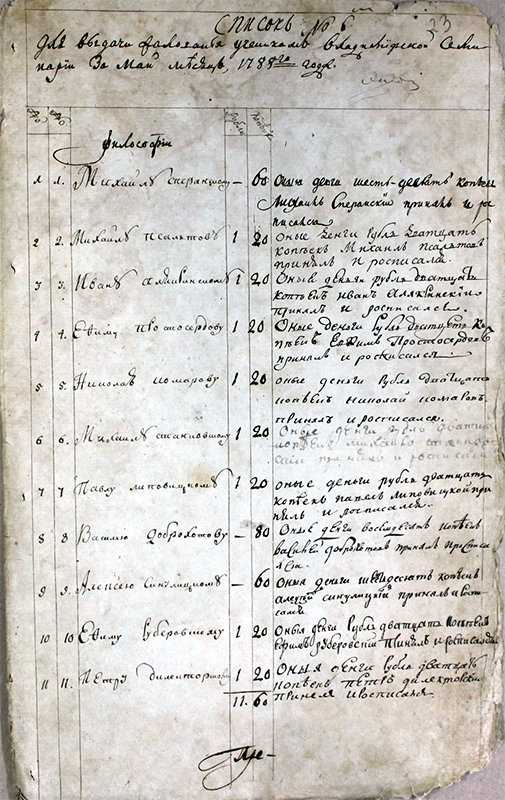 Списокъ № 6
33
Для выдачи жалованья ученикамъ владимїрской Семи
нарїи За Май мѣсяцъ, 1788го года.
Рубли
Копѣйк
Философїи
1 1. Михайлѣ Сперанскому — 60 Оныя денги шесть десятъ копѣекъ
Михаилъ Сперанский принялъ и ро
списался
2 2. Михайлѣ Псалтову 1 20 Оныя денги Рубль дватцать
копѣекъ Михаил
принялъ и росписалса.
3 3. Ивану 1 20 Оныя денги рубль дватцать
копѣекъ иванъ
принялъ и росписался.
4 4. Ефиму Простосердову 1 20 Оные денги Рубль дватцать Ко
пѣекъ Ефимъ Простосердовъ
принялъ и росписался.
5 5. Николаю Комарову 1 20 оные денги Рубль дватцать
копѣекъ николай комаровъ
принялъ и росписался.
6 6. Михайлѣ 1 20 Оные денги рубль дватцать
копѣекъ михайло
принялъ и росписался
7 7 Павлу Липовицкому 1 20 оные деньги рубль дватцать
копѣекъ павелъ липовицкой при
нялъ и росписался.
8 8 Василью Доброхотову — 80 Оныя денги восемдесятъ копѣекъ
василей доброхотовъ принялъ и росписа
лся.
9 9. Алексѣю Синулицкому — 60 Оныя денги шездесятъ копѣекъ
алексѣй синулицкїй принялъ и роспи
сался
10 10 Ефиму Руберовскому 1 20 Оныя денги Рубль дватцать копѣекъ
ефимъ руберовскїй принялъ и росписался
11 11. Петру 1 20 Оныя денги Рубль дватцать
копѣекъ петръ дилекторскїй
11. 60 принялъ и росписался